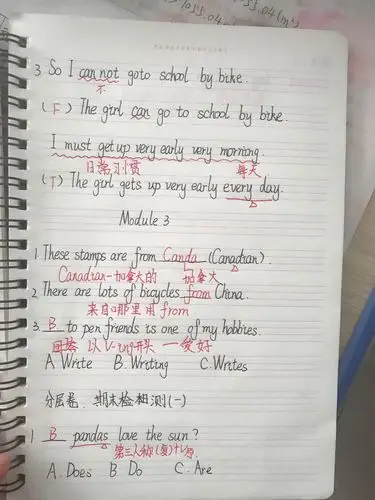 7055.04(m²)
3. So I can not goto school by bike.
不
(F) The girl can go to school by bike
I must get up very early very morning.
日常习惯 每天
(T) The girl gets up very early every day.
Module 3
1. These stamps are from Canda (Canadian).
Canadian-加拿大的 加拿大
2. There are lots of bicycles from China.
来自哪里用 from
3. B to pen friends is one of my hobbies.
以V-ing开头 一爱好
A. Write B. Writing C. Writes
分层卷. 期末检测(一)
1 B pandas love the sun?
第三人称(复)+V原.
A. Does B. Do C. Are